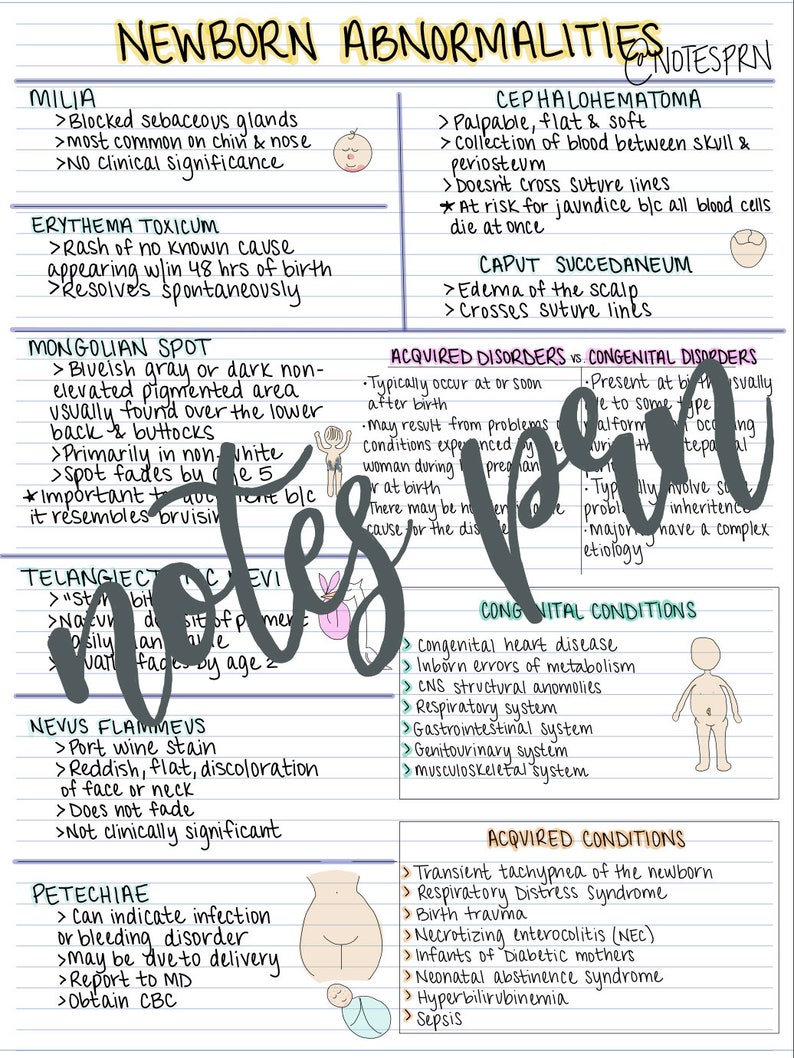 NEWBORN ABNORMALITIES
@NOTESPRN
MILIA
>Blocked sebaceous glands
>most common on chin & nose
>NO clinical significance
ERYTHEMA TOXICUM
>Rash of no known cause
appearing w/in 48 hrs of birth
>Resolves spontaneously
MONGOLIAN SPOT
>Blueish gray or dark non-
elevated pigmented area
usually found over the lower
back & buttocks
>Primarily in non-white
>Spot fades by age 5
*Important to b/c
it resembles bruising
>
>
by age 2
NEVUS FLAMMEUS
>Port wine stain
>Reddish, flat, discoloration
of face or neck
>Does not fade
>Not clinically significant
PETECHIAE
>Can indicate infection
or bleeding disorder
>may be due to delivery
>Report to MD
>Obtain CBC
CEPHALOHEMATOMA
>Palpable, flat & soft
>Collection of blood between skull &
periosteum
>Doesn't cross suture lines
*At risk for jaundice b/c all blood cells
die at once
CAPUT SUCCEDANEUM
>Edema of the scalp
>Crosses suture lines
ACQUIRED DISORDERS vs. CONGENITAL DISORDERS
·Typically occur at or soon
after birth
·may result from problems
conditions experienced by
woman during pregnancy
or at birth
There may be no
cause for the
·Present at birth usually
to some type
·Typically involve
inheritence
·majority have a complex
etiology
notes prn
CONGENITAL CONDITIONS
>Congenital heart disease
>Inborn errors of metabolism
>CNS structural anomolies
>Respiratory system
>Gastrointestinal system
>Genitourinary system
>musculoskeletal system
ACQUIRED CONDITIONS
>Transient tachypnea of the newborn
>Respiratory Distress Syndrome
>Birth trauma
>Necrotizing enterocolitis (NEC)
>Infants of Diabetic mothers
>Neonatal abstinence syndrome
>Hyperbilirubinemia
>Sepsis